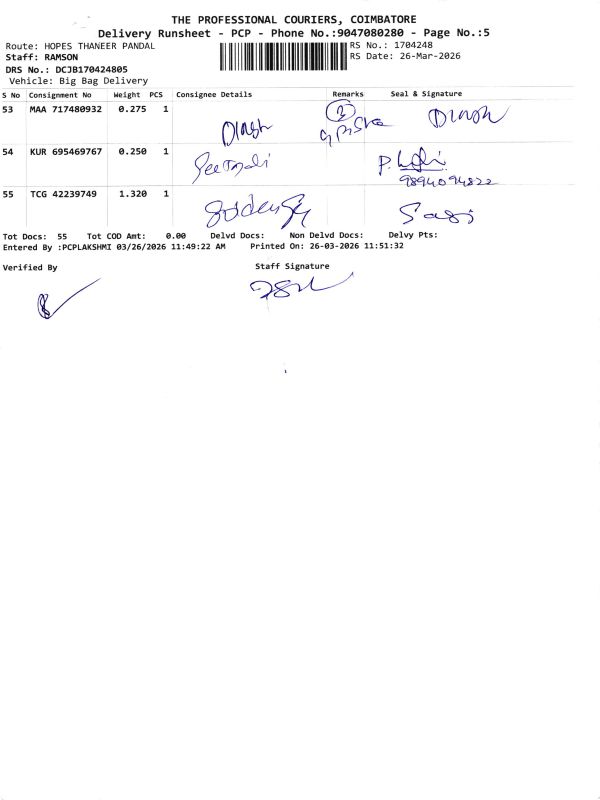 THE PROFESSIONAL COURIERS, COIMBATORE
Delivery Runsheet - PCP - Phone No.:9047080280 - Page No.:5
Route: HOPES THANEER PANDAL
RS No.: 1704248
Staff: RAMSON
RS Date: 26-Mar-2026
DRS No.: DCJB170424805
Vehicle: Big Bag Delivery
S No Consignment No Weight PCS Consignee Details Remarks Seal & Signature
53 MAA 717480932 0.275 1
Dinesh Dinesh
54 KUR 695469767 0.250 1
9894094822
55 TCG 42239749 1.320 1
Tot Docs: 55 Tot COD Amt: 0.00 Delvd Docs: Non Delvd Docs: Delvy Pts:
Entered By :PCPLAKSHMI 03/26/2026 11:49:22 AM Printed On: 26-03-2026 11:51:32
Verified By Staff Signature